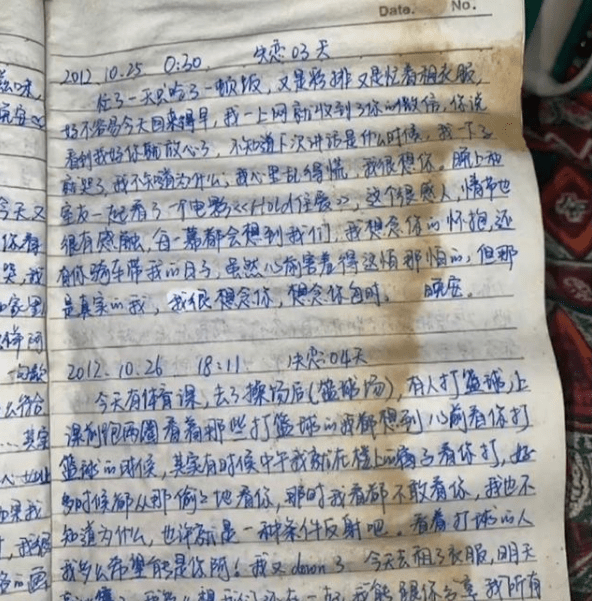 Date. No.
2012.10.25 0:30 失恋03天
忙了一天只吃了一顿饭，又是彩排又是忙着租衣服，
好不容易今天回来得早，我一上网就收到了你的微信，你说
看到我好你就放心了，不知道下次讲话是什么时候，我一下子
就哭了，我不知道为什么，我心里乱得慌，我很想你。晚上和
室友一起看了一个电影<<Hold住爱>>，这个很感人，情节也
很有感触，每一幕都会想到我们，我想念你的怀抱，还
有你骑车带我的日子，虽然以前害羞得这怕那怕的，但那
是真实的我，我很想念你，想念你每时。 晚安。
2012.10.26 18:11 失恋04天
今天有体育课，去了操场后(篮球场)，有人打篮球，上
课前跑两圈看着那些打篮球的我都想到以前看你打
篮球的时候，其实有时候中午我就在楼上的窗子看你打，好
多时候都从那偷偷地看你，那时我看都不敢看你，我也不
知道为什么，也许就是一种条件反射吧。看着打球的人
我多么希望能是你阿！我又down了 今天去租了衣服，明天
滋味，
晚安
今天又
你看
哭，我
如果我
我很